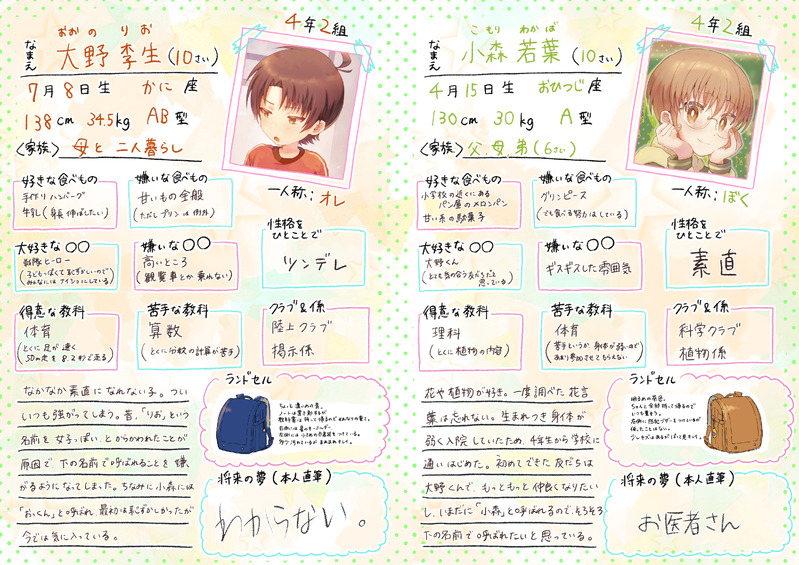 4年2組
なまえ 大野 李生 (10さい)
おおの りお
7月8日生 かに座
138cm 34.5kg AB型
〈家族〉 母と二人暮らし
一人称：オレ
好きな食べもの
手作りハンバーグ
牛乳(身長伸ばしたい)
嫌いな食べもの
甘いもの全般
(ただしプリンは例外)
性格をひとことで
ツンデレ
大好きな〇〇
戦隊ヒーロー
(子どもっぽくて恥ずかしいので
みんなにはナイショにしている)
嫌いな〇〇
高いところ
(観覧車とか乗れない)
得意な教科
体育
(とくに足が速く
50m走を8.2秒で走る)
苦手な教科
算数
(とくに分数の計算が苦手)
クラブ&係
陸上クラブ
掲示係
なかなか素直になれない子。つい
いつも強がってしまう。昔、「りお」という
名前を女子っぽい、とからかわれたことが
原因で、下の名前で呼ばれることを嫌
がるようになってしまった。ちなみに小森には
「おっくん」と呼ばれ、最初は恥ずかしかったが
今では気に入っている。
ランドセル
将来の夢(本人直筆)
わからない。
4年2組
なまえ 小森 若葉 (10さい)
こもり わかば
4月15日生 おひつじ座
130cm 30kg A型
〈家族〉 父、母、弟(6さい)
一人称：ぼく
好きな食べもの
小学校の近くにある
パン屋のメロンパン
甘い系の駄菓子
嫌いな食べもの
グリンピース
(でも食べる努力はしている)
性格をひとことで
素直
大好きな〇〇
大野くん
(とても気の合う友だちだと
思っている)
嫌いな〇〇
ギスギスした雰囲気
得意な教科
理科
(とくに植物の内容)
苦手な教科
体育
(苦手というか、身体が弱いので
あまり参加させてもらえない)
クラブ&係
科学クラブ
植物係
花や植物が好き。一度調べた花言
葉は忘れない。生まれつき身体が
弱く入院していたため、4年生から学校に
通いはじめた。初めてできた友だちは
大野くんで、もっともっと仲良くなりたい
し、いまだに「小森」と呼ばれるので、そろそろ
下の名前で呼ばれたいと思っている。
ランドセル
将来の夢(本人直筆)
お医者さん